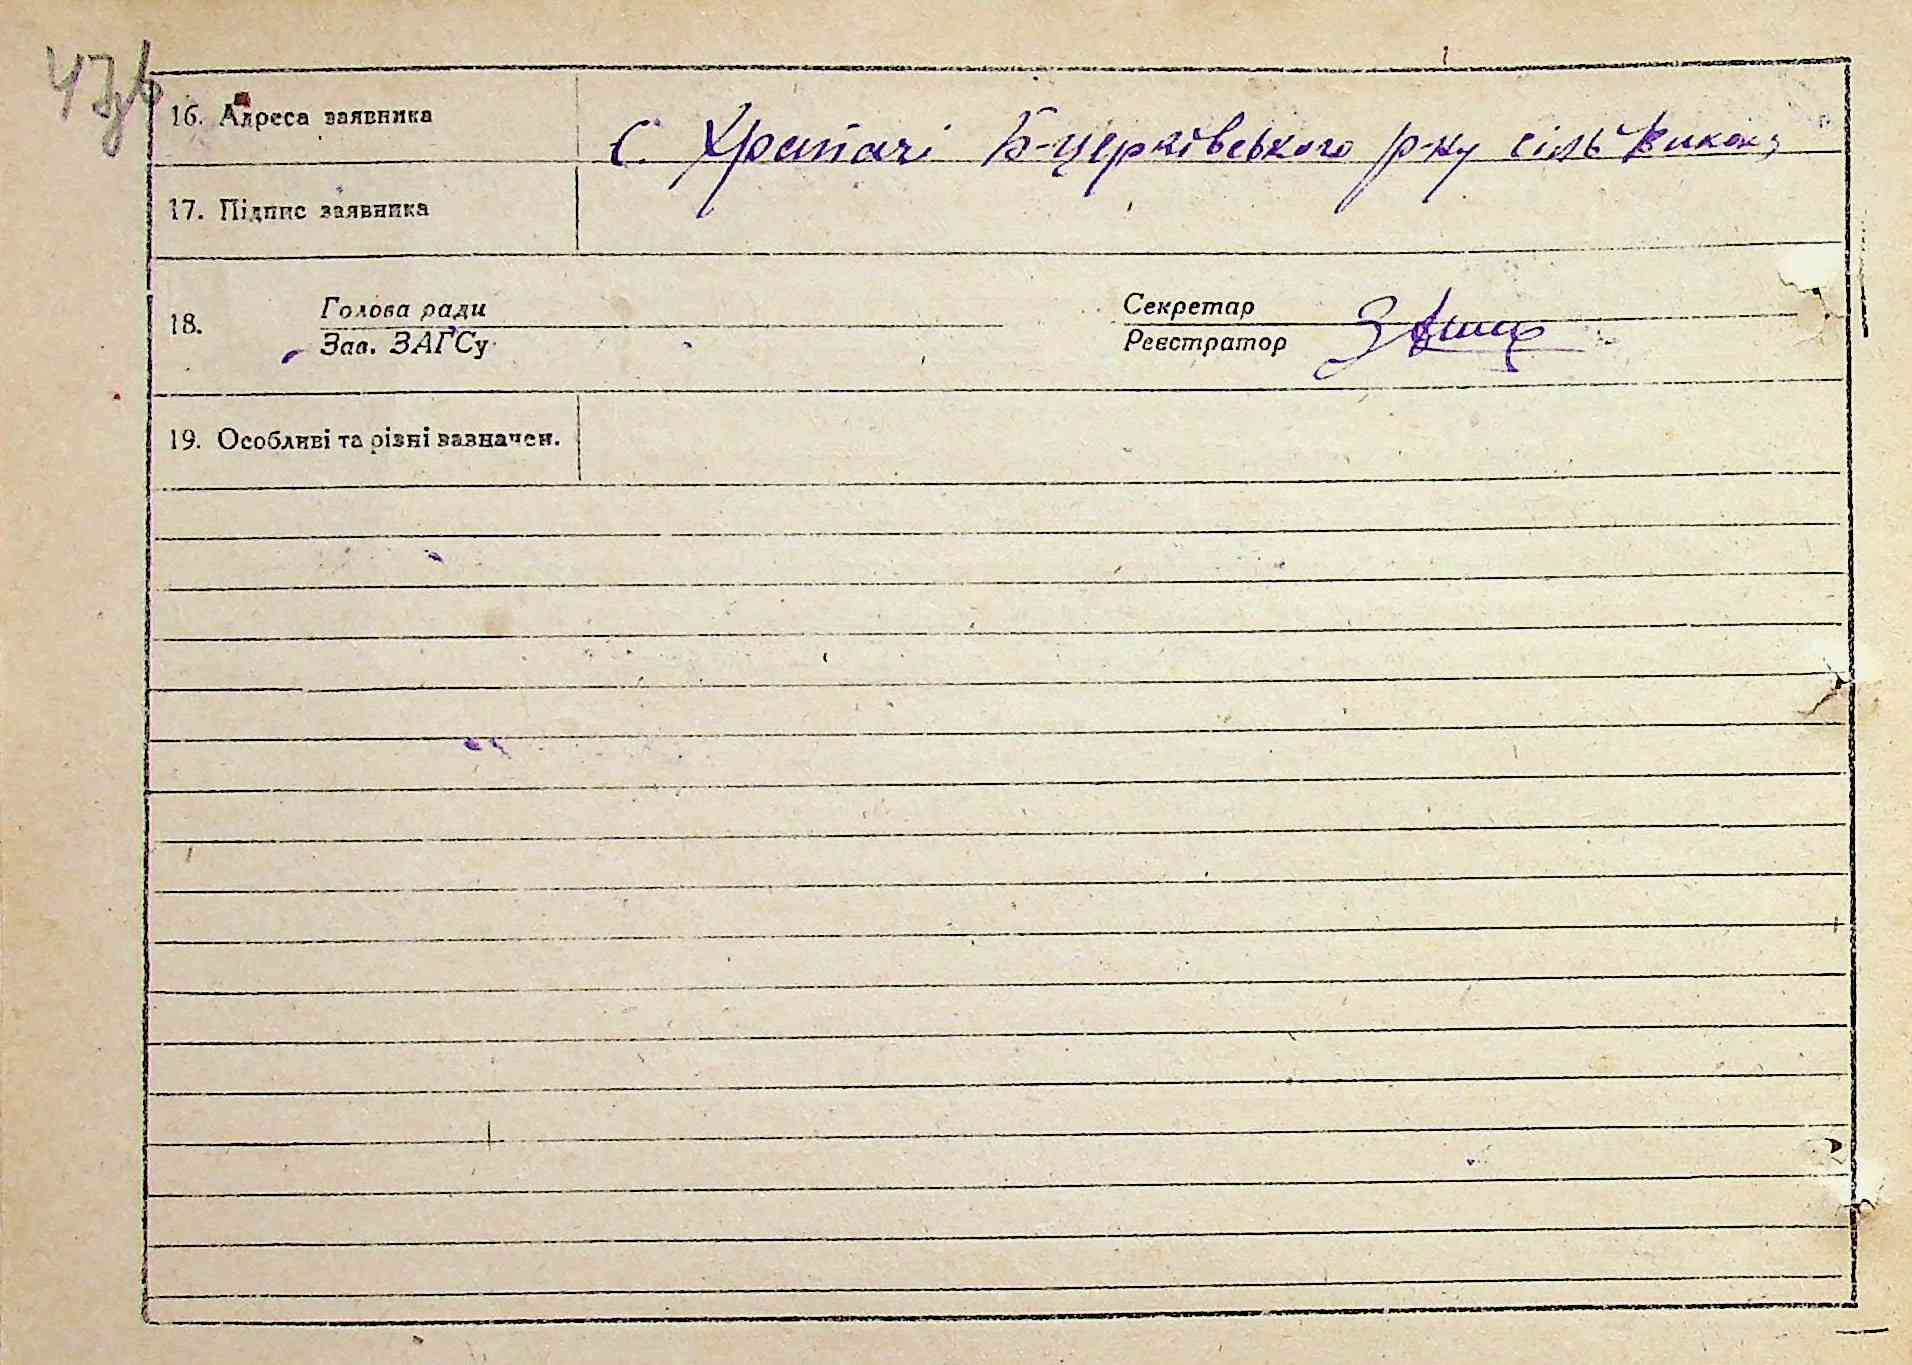 47зв
16. Адреса заявника
с. Храпачі Б-церківського р-ну сільвикон,
17. Підпис заявника
18.
Голова ради
Зав. ЗАГСу
Секретар
Реєстратор
19. Особливі та різні зазначен.